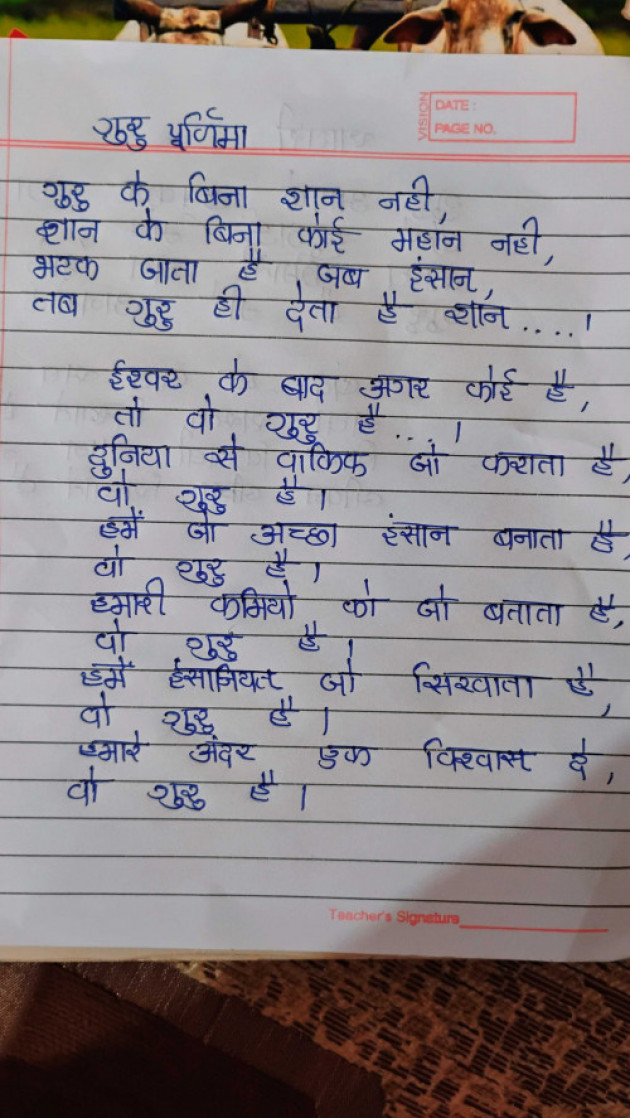 VISION
DATE :
PAGE NO.
गुरु पूर्णिमा
गुरु के बिना ज्ञान नही,
ज्ञान के बिना कोई महान नही,
भटक जाता है जब इंसान,
तब गुरु ही देता है ज्ञान....।
ईश्वर के बाद अगर कोई है,
तो वो गुरु है...।
दुनिया से वाकिक जो कराता है,
वो गुरु है।
हमें जो अच्छा इंसान बनाता है,
वो गुरु है।
हमारी कमियो को जो बताता है,
वो गुरु है।
हमें इंसानियत जो सिखाता है,
वो गुरु है।
हमारे अंदर एक विश्वास दे,
वो गुरु है।
Teacher's Signature